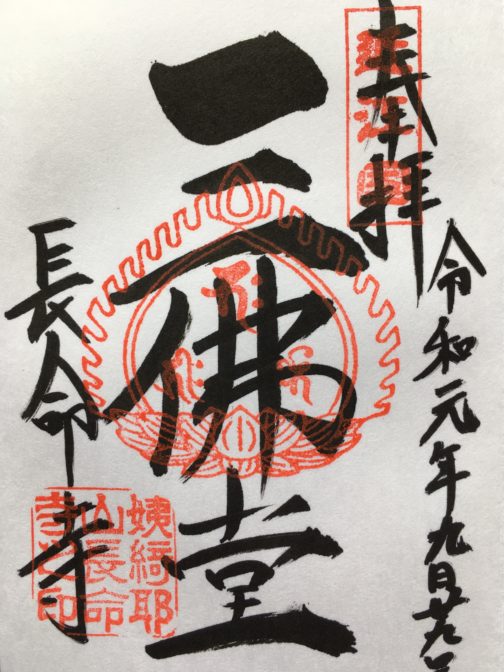 奉拝
令和元年九月廿九日
三佛堂
長命寺
姨綺耶
山長命
寺之印